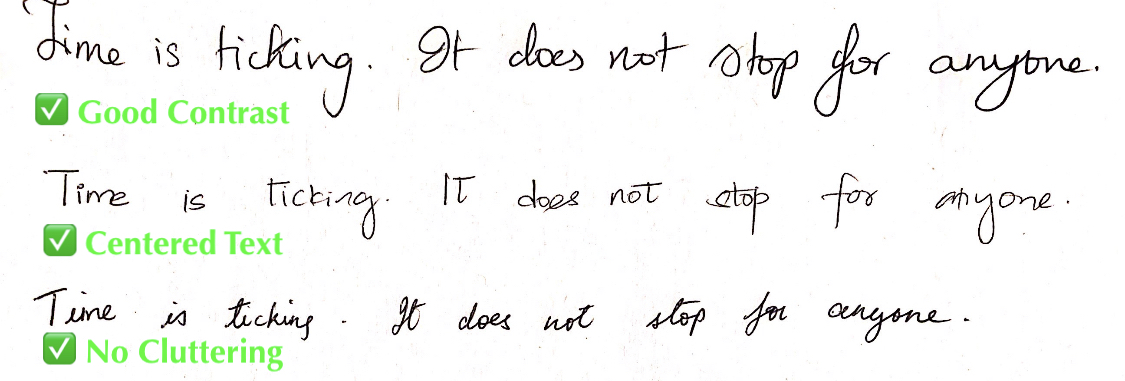 Time is ticking. It does not stop for anyone.
✅ Good Contrast
Time is ticking. IT does not stop for anyone.
✅ Centered Text
Time is ticking. It does not stop for anyone.
✅ No Cluttering